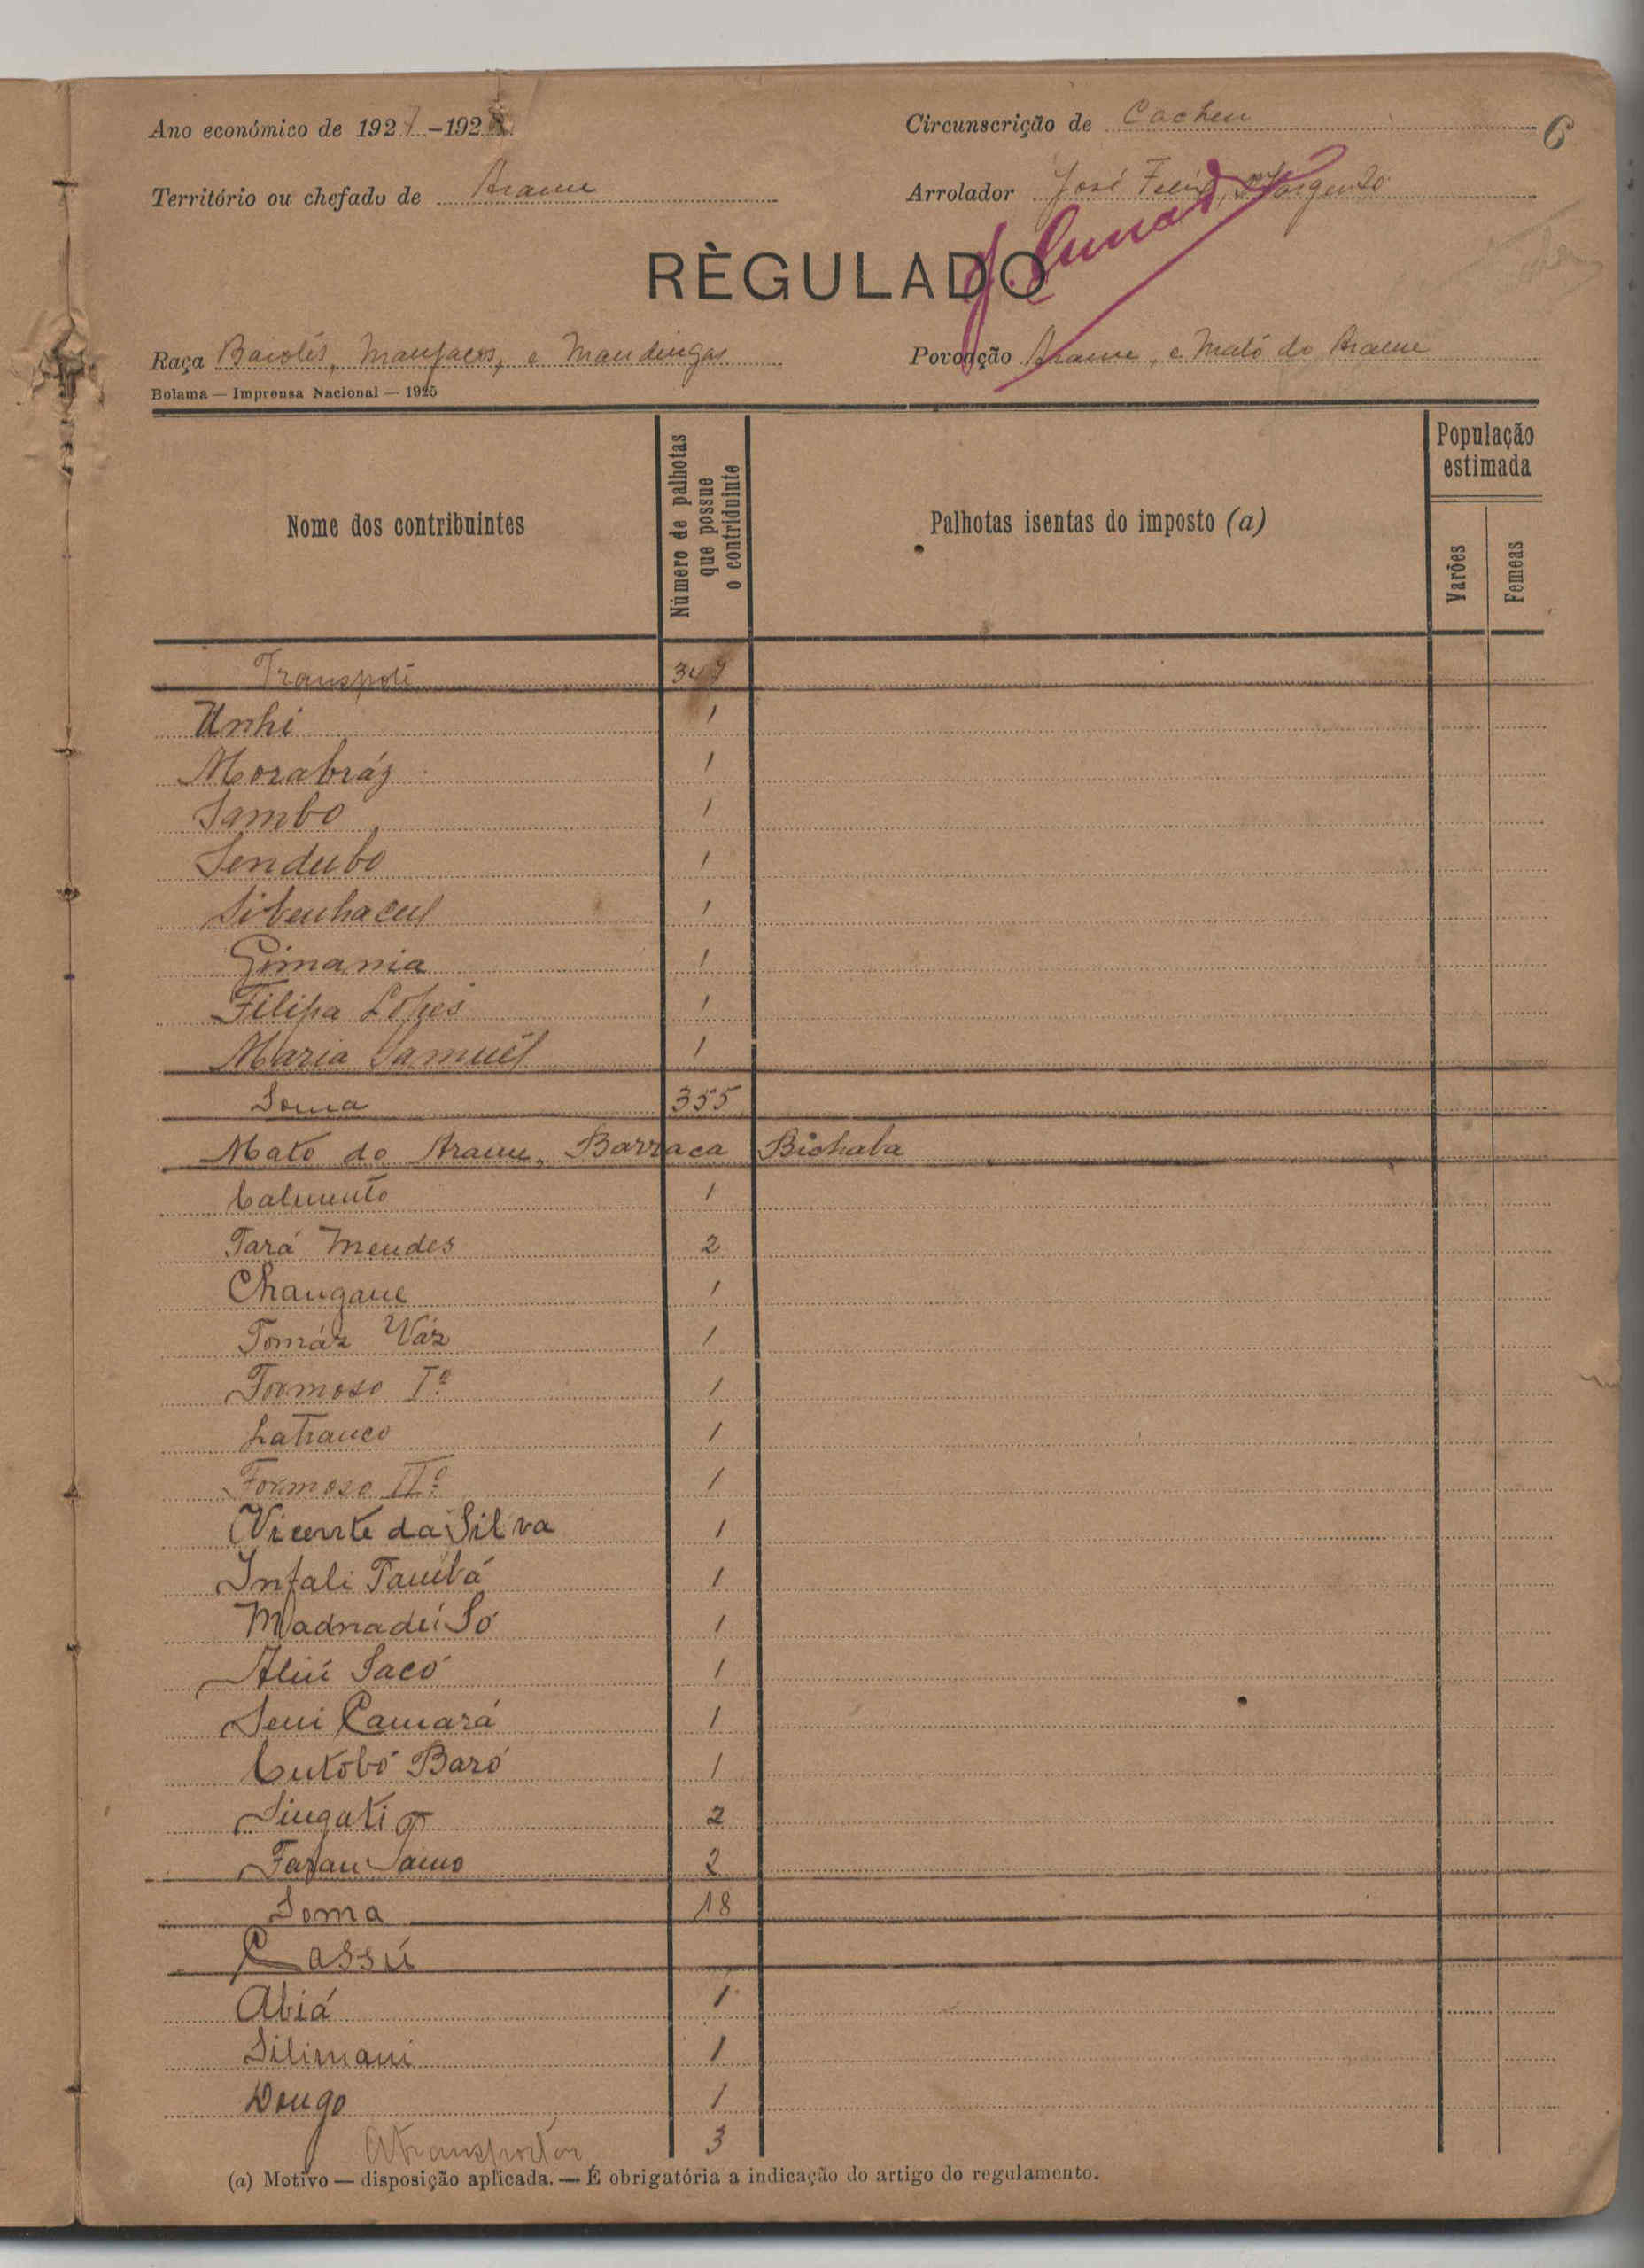 Ano económico de 1927-192
Circunscrição de Cacheu
6
Território ou chefado de Arame
Arrolador José Felix, Sargento
RÈGULADO
Raça Baiotes, Manjacos, e Mandingas
Povoação Arame, e Mato do Arame
Bolama — Imprensa Nacional — 1925
Nome dos contribuintes
Número de palhotas que possue o contriduinte
Palhotas isentas do imposto (a)
População estimada
Varões
Femeas
Transporte 347
Unhi 1
Morabráz 1
Sambo 1
Sendubo 1
1
Gimania 1
Filipa Lopes 1
Maria Samuel 1
Soma 355
Mato do Arame, Barraca Bichala
Calmento 1
Tará Mendes 2
Changane 1
Tomáz Váz 1
Formoso Iº 1
Latranco 1
Formoso IIº 1
Vicente da Silva 1
Infali Tambá 1
Madnadei Só 1
Aliú Sacó 1
Seni Camará 1
Cutobó Baró 1
Singuti 2
Fafan Samo 2
Soma 18
Cassú
Abiá 1
Silimani 1
Dougo 1
A transportar 3
(a) Motivo — disposição aplicada. — É obrigatória a indicação do artigo do regulamento.